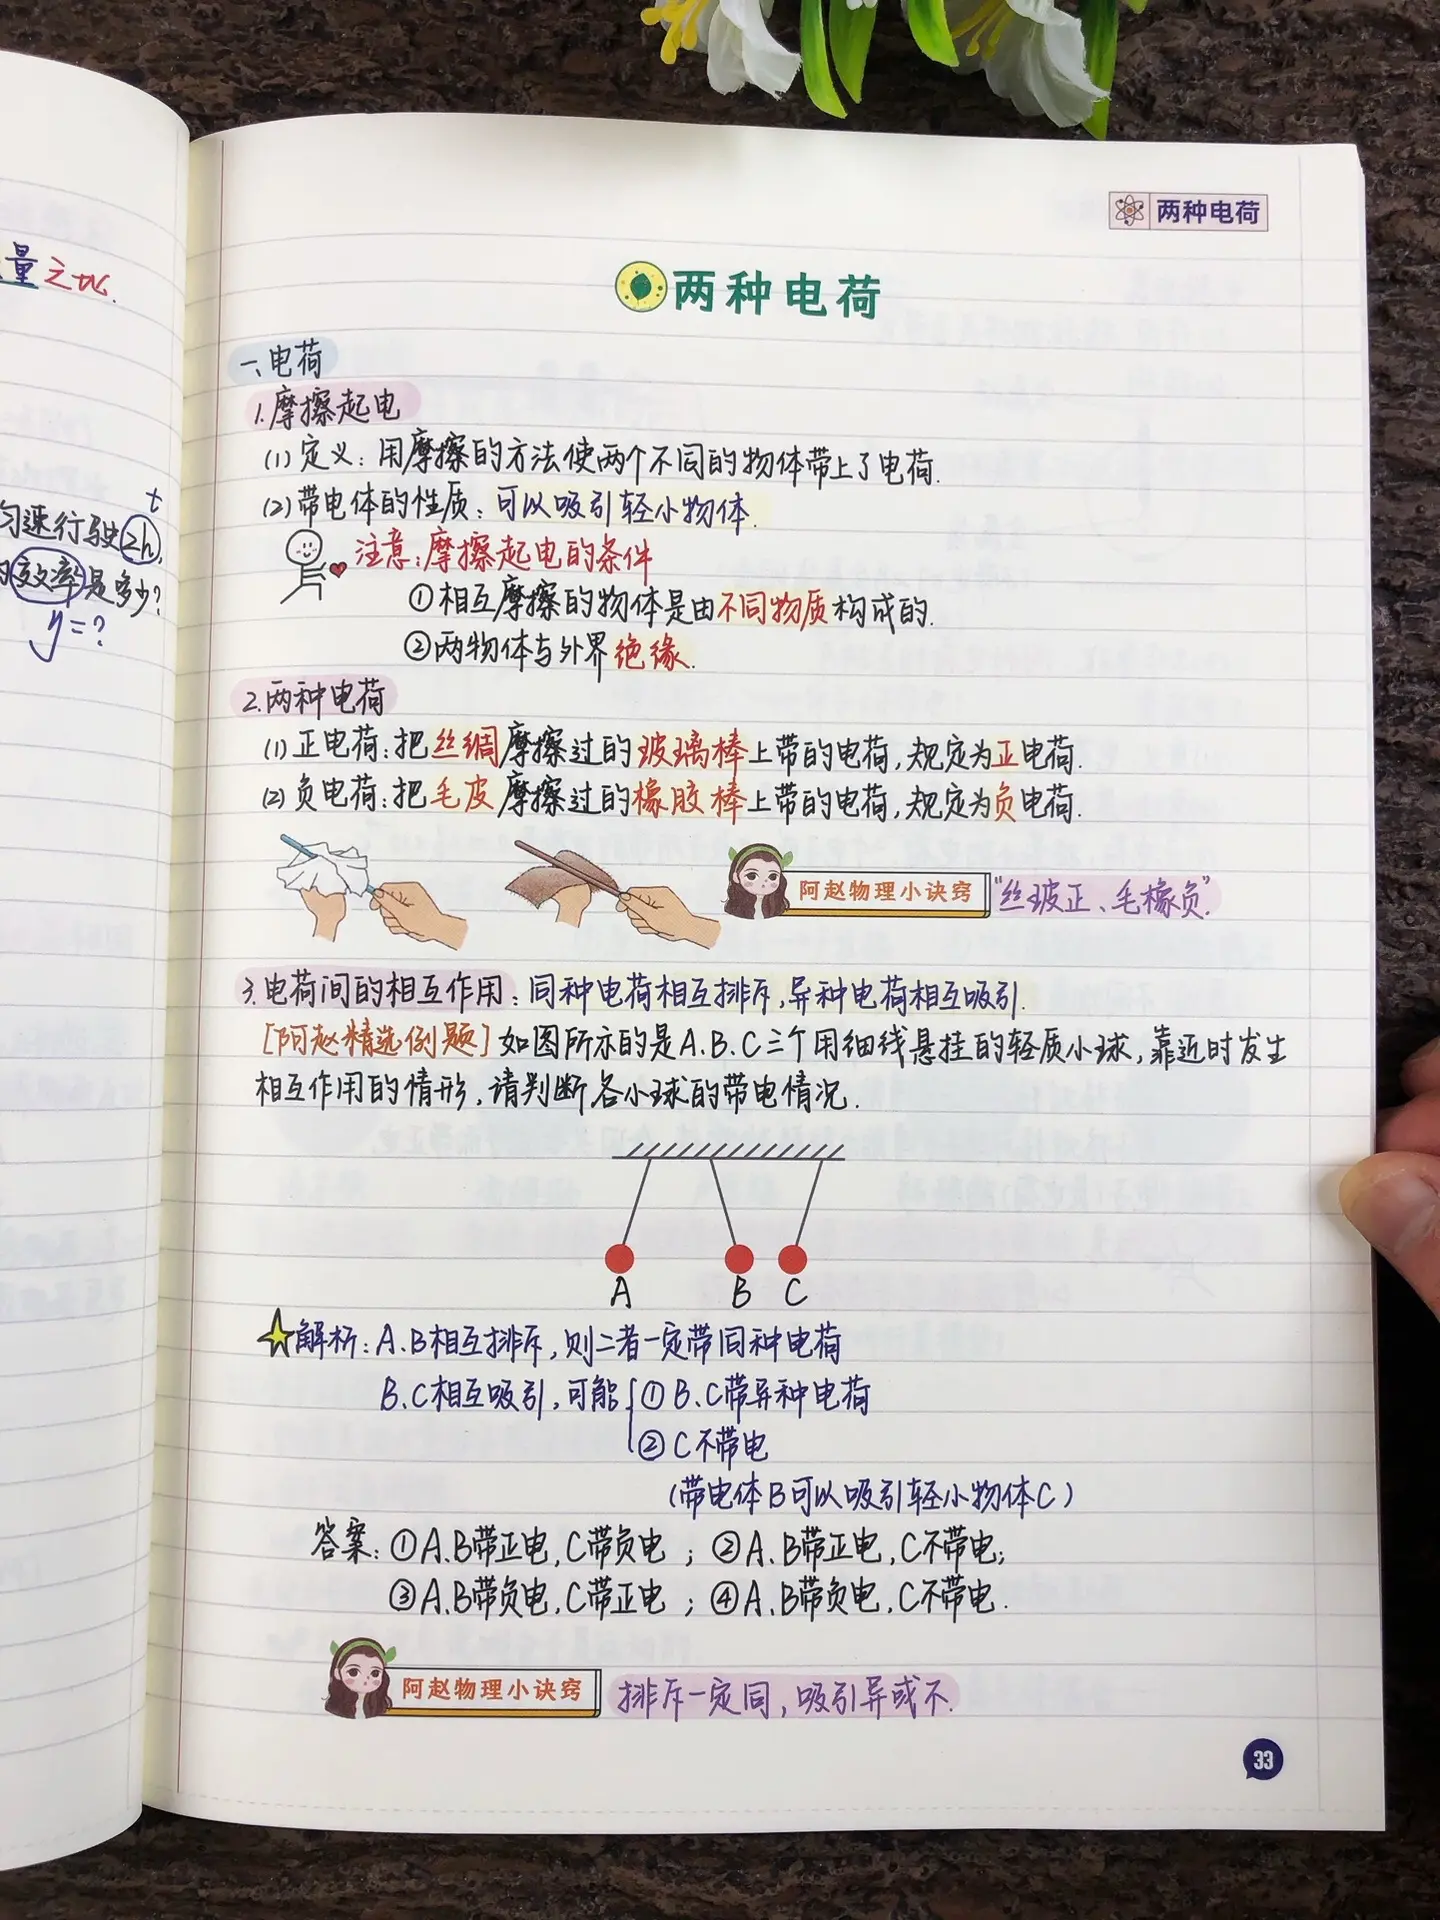 量之比.
t
匀速行驶2h,
的效率是多少?
η=?
两种电荷
两种电荷
一、电荷
1.摩擦起电
(1)定义:用摩擦的方法使两个不同的物体带上了电荷.
(2)带电体的性质:可以吸引轻小物体.
注意:摩擦起电的条件
①相互摩擦的物体是由不同物质构成的.
②两物体与外界绝缘.
2.两种电荷
(1)正电荷:把丝绸摩擦过的玻璃棒上带的电荷,规定为正电荷.
(2)负电荷:把毛皮摩擦过的橡胶棒上带的电荷,规定为负电荷.
阿赵物理小诀窍 "丝玻正、毛橡负".
3.电荷间的相互作用:同种电荷相互排斥,异种电荷相互吸引.
[阿赵精选例题]如图所示的是A.B.C三个用细线悬挂的轻质小球,靠近时发生
相互作用的情形,请判断各小球的带电情况.
A B C
解析:A.B相互排斥,则二者一定带同种电荷
B.C相互吸引,可能{①B.C带异种电荷
②C不带电
(带电体B可以吸引轻小物体C)
答案:①A.B带正电,C带负电;②A.B带正电,C不带电;
③A.B带负电,C带正电;④A.B带负电,C不带电.
阿赵物理小诀窍 排斥一定同,吸引异或不.
33